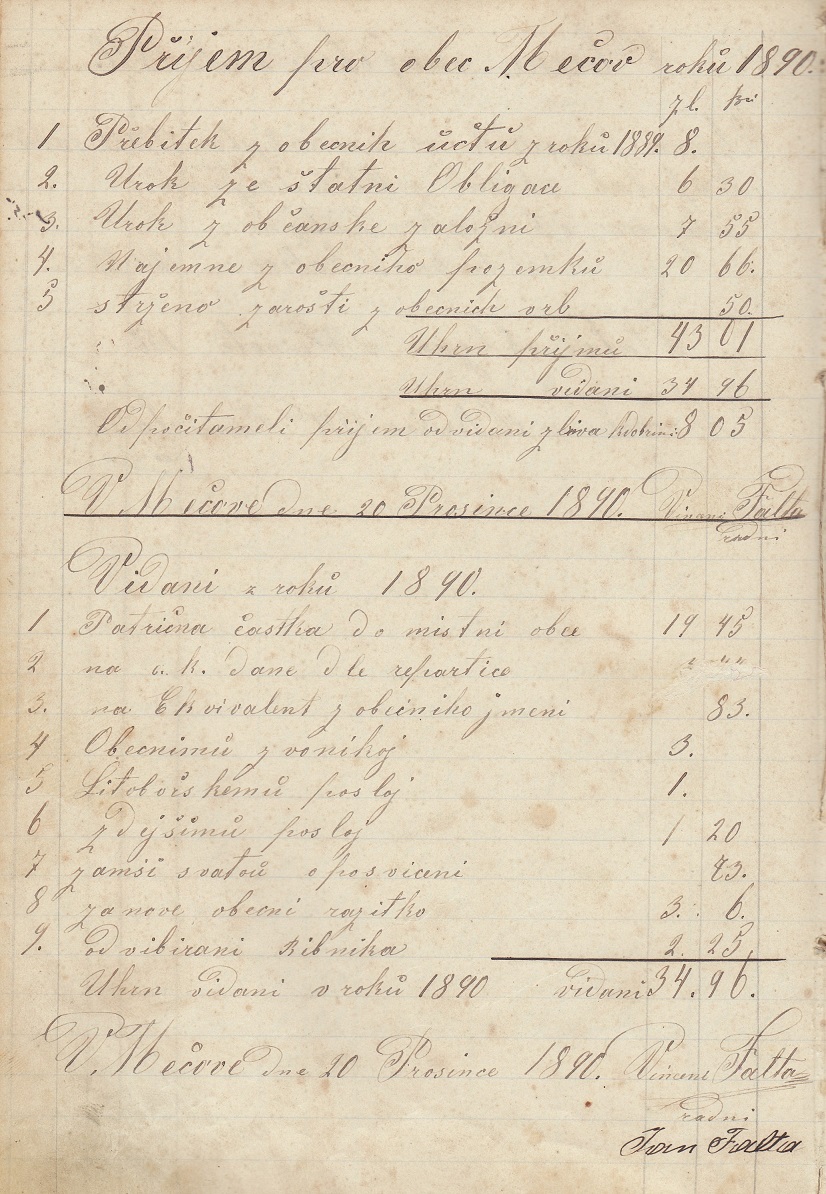 Přijem pro obec Mečov roků 1890.
zl. kr
1 Přebitek z obecnih účtů z roků 1889. 8.
2. Urok ze štatni Obligace 6 30
3. Urok z občanske založni 7 55
4. Najemne z obecniho pozemků 20 66.
5 strženo zarošti z obecnich vrb 50.
Uhrn přijmů 43 01
Uhrn vidani 34 96
Odpočitameli přijem od vidani zbiva k dobrini: 8 05
V Mečove dne 20 Prosince 1890. Vincenc Falta
radni
Vidani z roků 1890.
1 Patrična častka do mistni obce 19 45
2 na c. k. dane dle repartice " " "
3. na Ekvivalent z obecniho jmeni 83.
4 Obecnimů zvonikoj 3.
5 Litobořskemů posloj 1.
6 zdejšimů posloj 1 20
7 zamši svatoů o posviceni
8 zanove obecni razitko 3. 6.
9. od vibirani Ribnika 2. 25.
Uhrn vidani v roků 1890 vidani 34. 96.
V Mečove dne 20 Prosince 1890. Vincenc Falta
radni
Jan Falta